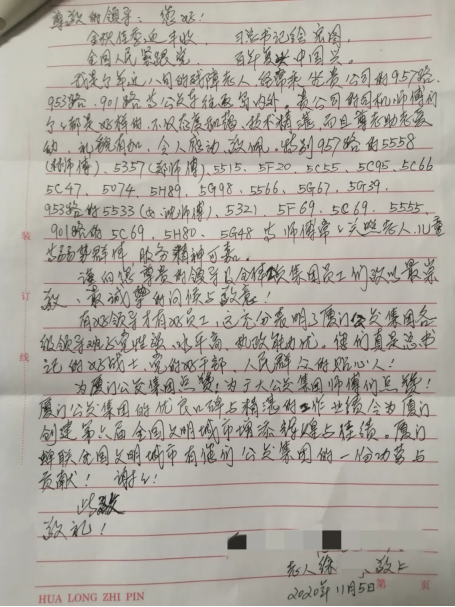 尊敬的领导： 您好！
全国人民紧跟党 百年复兴中国兴。
我是个年近八旬的残障老人，经常乘坐贵公司的957路、
953路、901路等公交车往返岛内外。贵公司的司机师傅们
个个都是好样的，不仅态度和蔼、技术精湛，而且尊老助老爱
幼、礼貌有加，令人感动、敬佩。特别957路的5558
(师傅)、5357(郑师傅)、5515、5F20、5C55、5C95、5C66
5C47、5074、5H89、5G98、5566、5G67、5G39、
953路的5533(师傅)、5321、5F69、5C69、5555、
901路的5C69、5H80、5G48等师傅关照老人、儿童
等弱势群体，服务精神可嘉。
谨向您尊贵的领导及全体公交集团员工们致以最崇
敬、最诚挚的问候与敬意！
有好领导才有好员工，这充分表明了厦门公交集团各
级领导班子党性强、水平高、执政能力优。他们真是总书
记的好战士，党的好干部，人民群众的贴心人！
为厦门公交集团点赞！为广大公交集团师傅们点赞！
厦门公交集团的优良口碑与精湛的工作业绩会为厦门
创建第六届全国文明城市增添辉煌与佳绩。厦门
蝉联全国文明城市有他们公交集团的一份功劳与
贡献！ 谢谢！
此致
敬礼！
老人 敬上
2020年11月5日
装
订
线
HUA LONG ZHI PIN
第 页